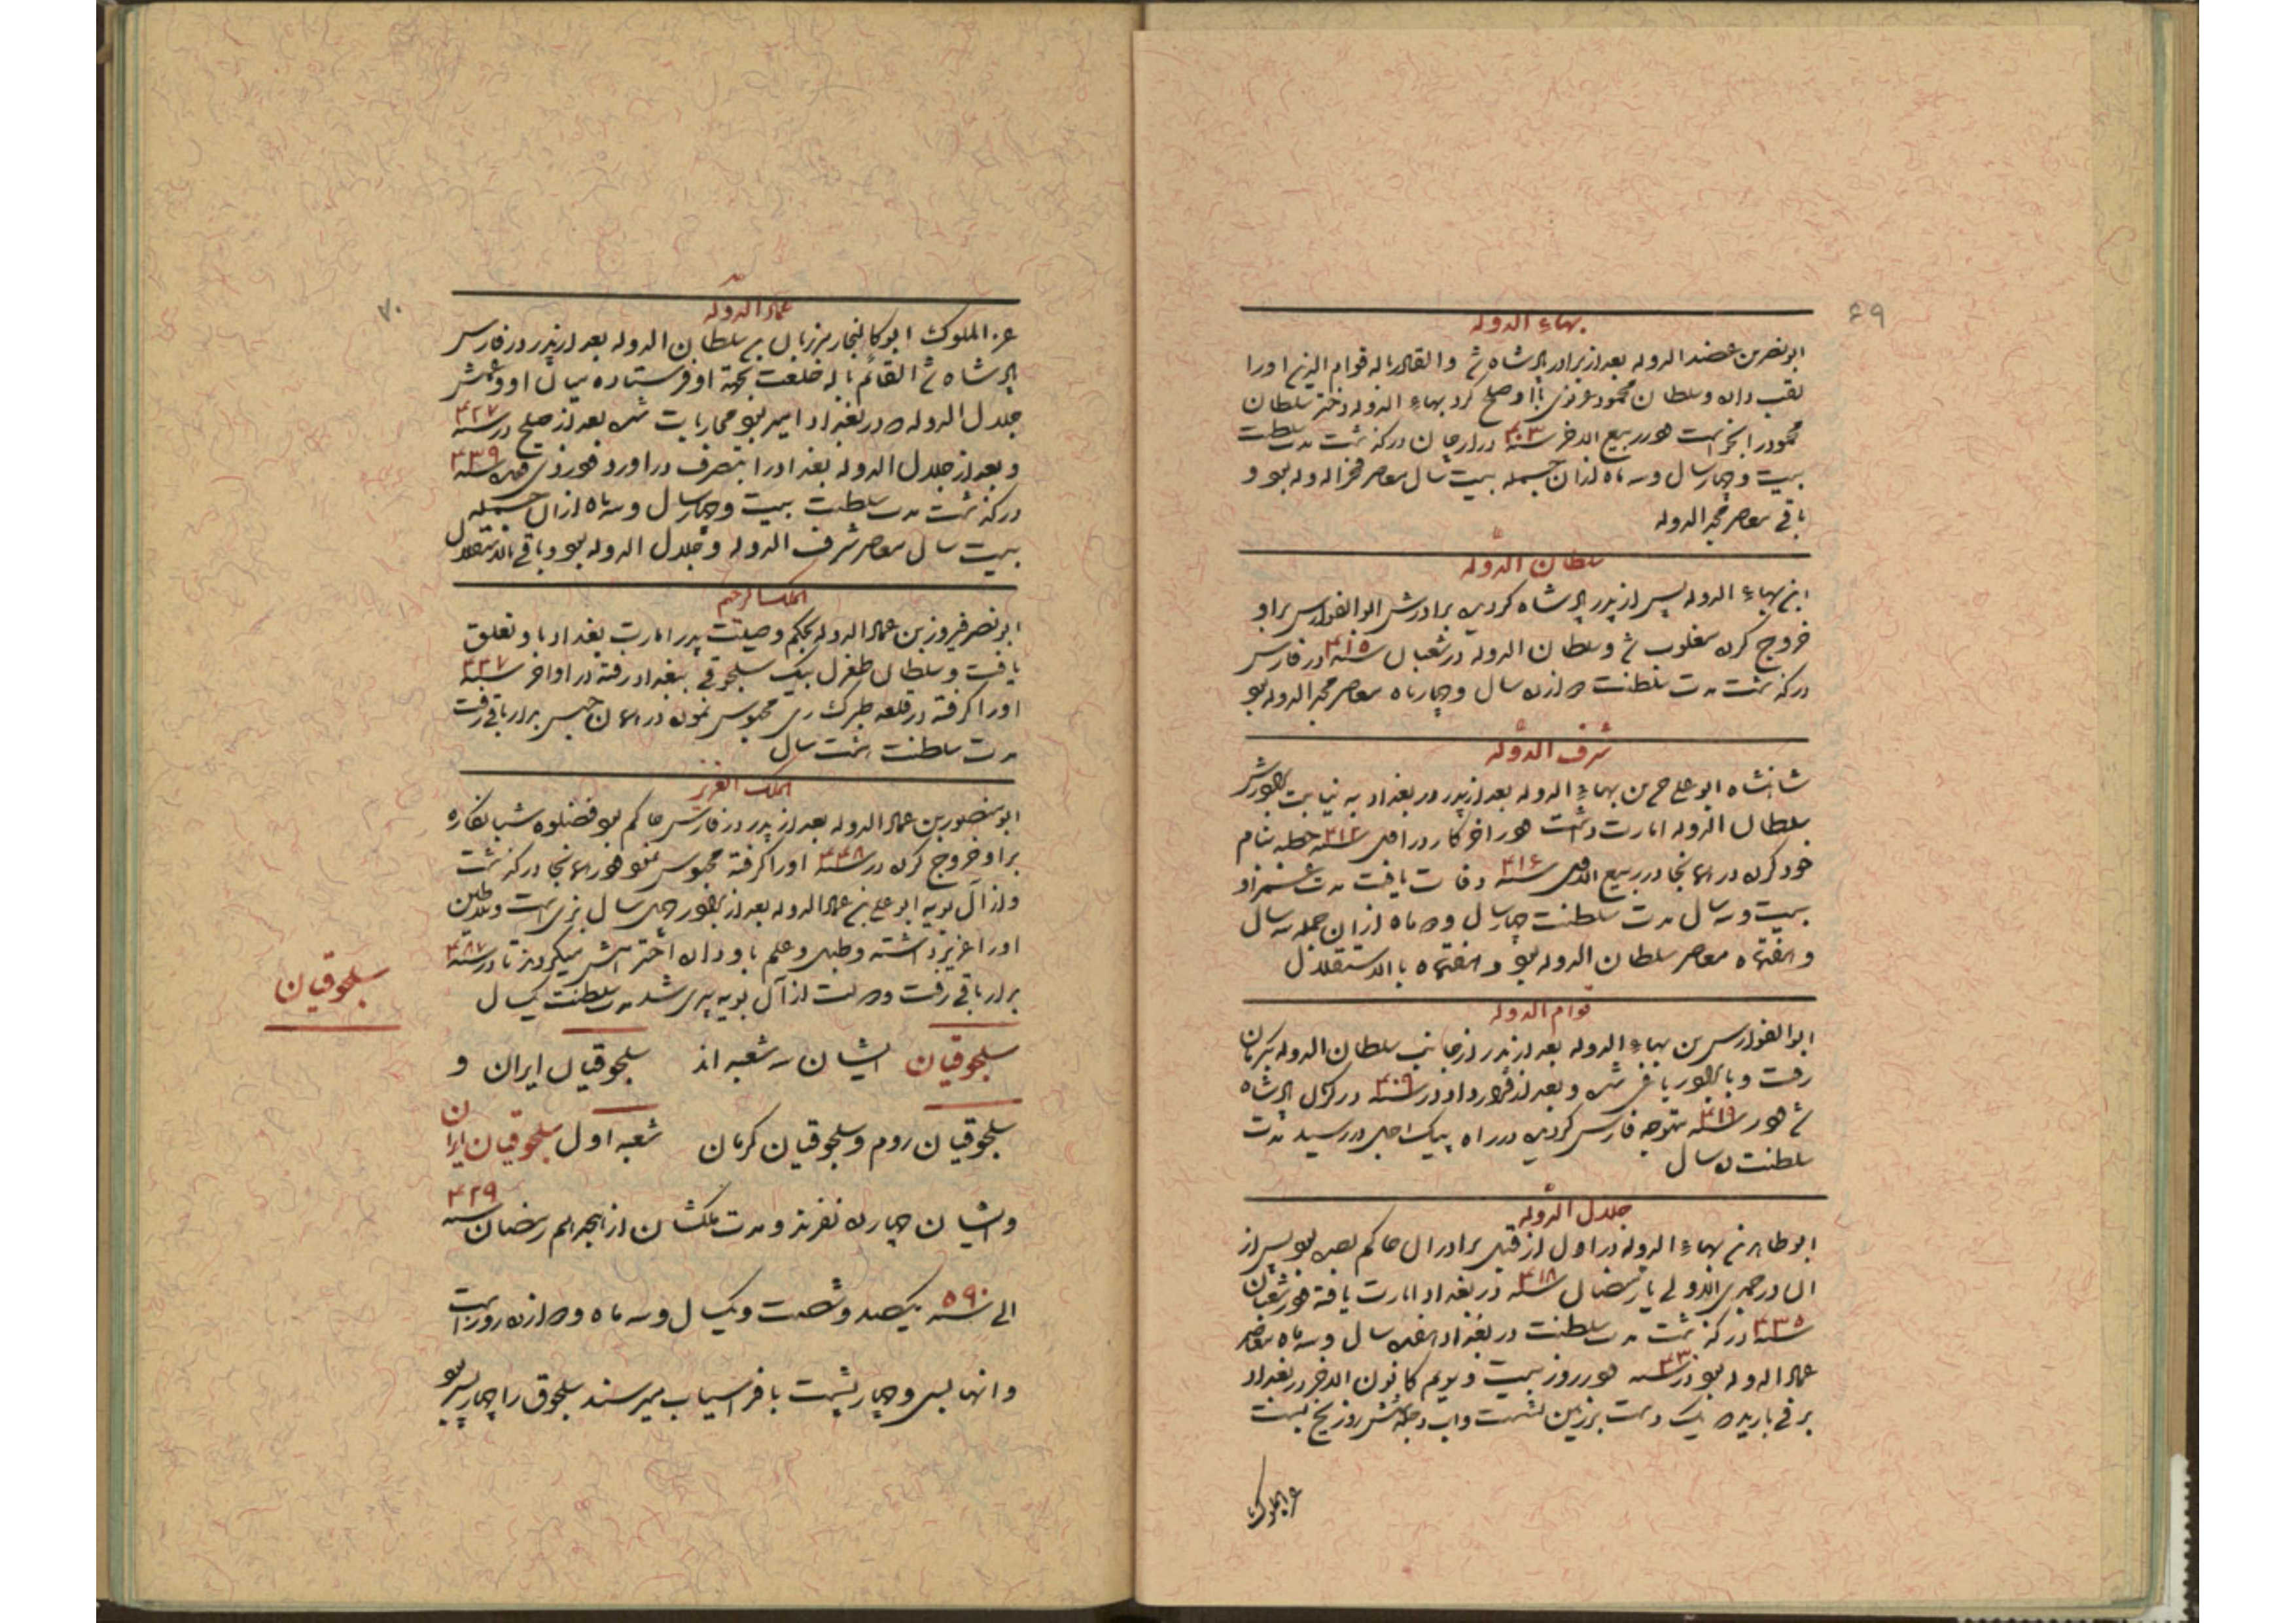 ۶۹
بهاء الدوله
ابونصر بن عضد الدوله بعد از برادر پادشاه شد و القادر بالله قوام الدین او را
لقب داده و سلطان محمود غزنوی با او صلح کرد بهاء الدوله دختر سلطان
محمود را بخواست و در ربیع الاخر سنه ۴۰۳ در ارجان درگذشت مدت سلطنت
بیست و چهار سال و سه ماه از آن جمله بیست سال معاصر فخر الدوله بود و
باقی معاصر مجد الدوله
سلطان الدوله
ابن بهاء الدوله پس از پدر پادشاه گردید برادرش ابو الفوارس بر او
خروج کرده مغلوب شد و سلطان الدوله در شعبان سنه ۴۱۵ در فارس
درگذشت مدت سلطنت دوازده سال و چهار ماه معاصر مجد الدوله بود
شرف الدوله
شاهنشاه ابو علی بن بهاء الدوله بعد از پدر در بغداد به نیابت برادرش
سلطان الدوله امارت داشت و در اخر کار در سنه ۴۱۲ خطبه بنام
خود کرده در همانجا در ربیع الاول سنه ۴۱۶ وفات یافت مدت عمر او
بیست و سه سال مدت سلطنت چهار سال و دو ماه از آن جمله سه سال
و هفتماه معاصر سلطان الدوله بود و هفتماه بالاستقلال
قوام الدوله
ابو الفوارس بن بهاء الدوله بعد از پدر از جانب سلطان الدوله بکرمان
رفت و با برادر یاغی شده و بعد از قرارداد در سنه ۴۰۹ در کرمان پادشاه
شد و در سنه ۴۱۹ متوجه فارس گردید در راه پیک اجل در رسید مدت
سلطنت ده سال
جلال الدوله
ابو طاهر بن بهاء الدوله در اول از قبل برادران حاکم بصره بود پس از
ان در جمادی الاولی یا رمضان سنه ۴۱۸ در بغداد امارت یافته و در شعبان
سنه ۴۳۵ درگذشت مدت سلطنت در بغداد هفده سال و سه ماه معاصر
عماد الدوله بود در سنه ۴۳۰ در روز بیست و دویم کانون الاخر در بغداد
برفی بارید که یک دست بر زمین نشست و آب دجله شش روز یخ بست
عز الملوک
۷۰
عماد الدوله
عز الملوک ابو کالنجار مرزبان بن سلطان الدوله بعد از پدر در فارس
پادشاه شد القائم بالله خلعت بجهة او فرستاده میان او و عمش
جلال الدوله که در بغداد امیر بود محاربات شد بعد از صلح در سنه ۴۲۷
و بعد از جلال الدوله بغداد را بتصرف در اورد و در سنه ۴۳۹
درگذشت مدت سلطنت بیست و چهار سال و سه ماه از آن جمله
بیست سال معاصر شرف الدوله و جلال الدوله بود و باقی بالاستقلال
الملک الرحیم
ابو نصر فیروز بن عماد الدوله بحکم وصیت پدر امارت بغداد باو تعلق
یافت و سلطان طغرل بیک سلجوقی ببغداد رفته در اواخر سنه ۴۴۷
او را گرفته در قلعه طبرک ری محبوس نموده در همان حبس بدار باقی رفت
مدت سلطنت هشت سال
الملک العزیز
ابو منصور بن عماد الدوله بعد از پدر در فارس حاکم بود فضلوه شبانکاره
بر او خروج کرده در سنه ۴۴۸ او را گرفته محبوس نمود و در همانجا درگذشت
و از آل بویه ابو علی بن عماد الدوله بعد از برادر چهل سال بزیست و سلاطین
او را عزیز داشته و طبل و علم باو داده احترامش میکردند تا در سنه ۴۸۷
بدار باقی رفت و دولت از آل بویه سپری شد مدت سلطنت یکسال
سلجوقیان
سلجوقیان ایشان سه شعبه اند سلجوقیان ایران و
سلجوقیان روم و سلجوقیان کرمان شعبه اول سلجوقیان ایران
و ایشان چهارده نفرند و مدت ملکشان از هجدهم رمضان سنه ۴۲۹
الی سنه ۵۹۰ یکصد و شصت و یکسال و سه ماه و دوازده روز است
و انها بسی و چهار پشت بافراسیاب میرسند سلجوق را چهار پسر بود